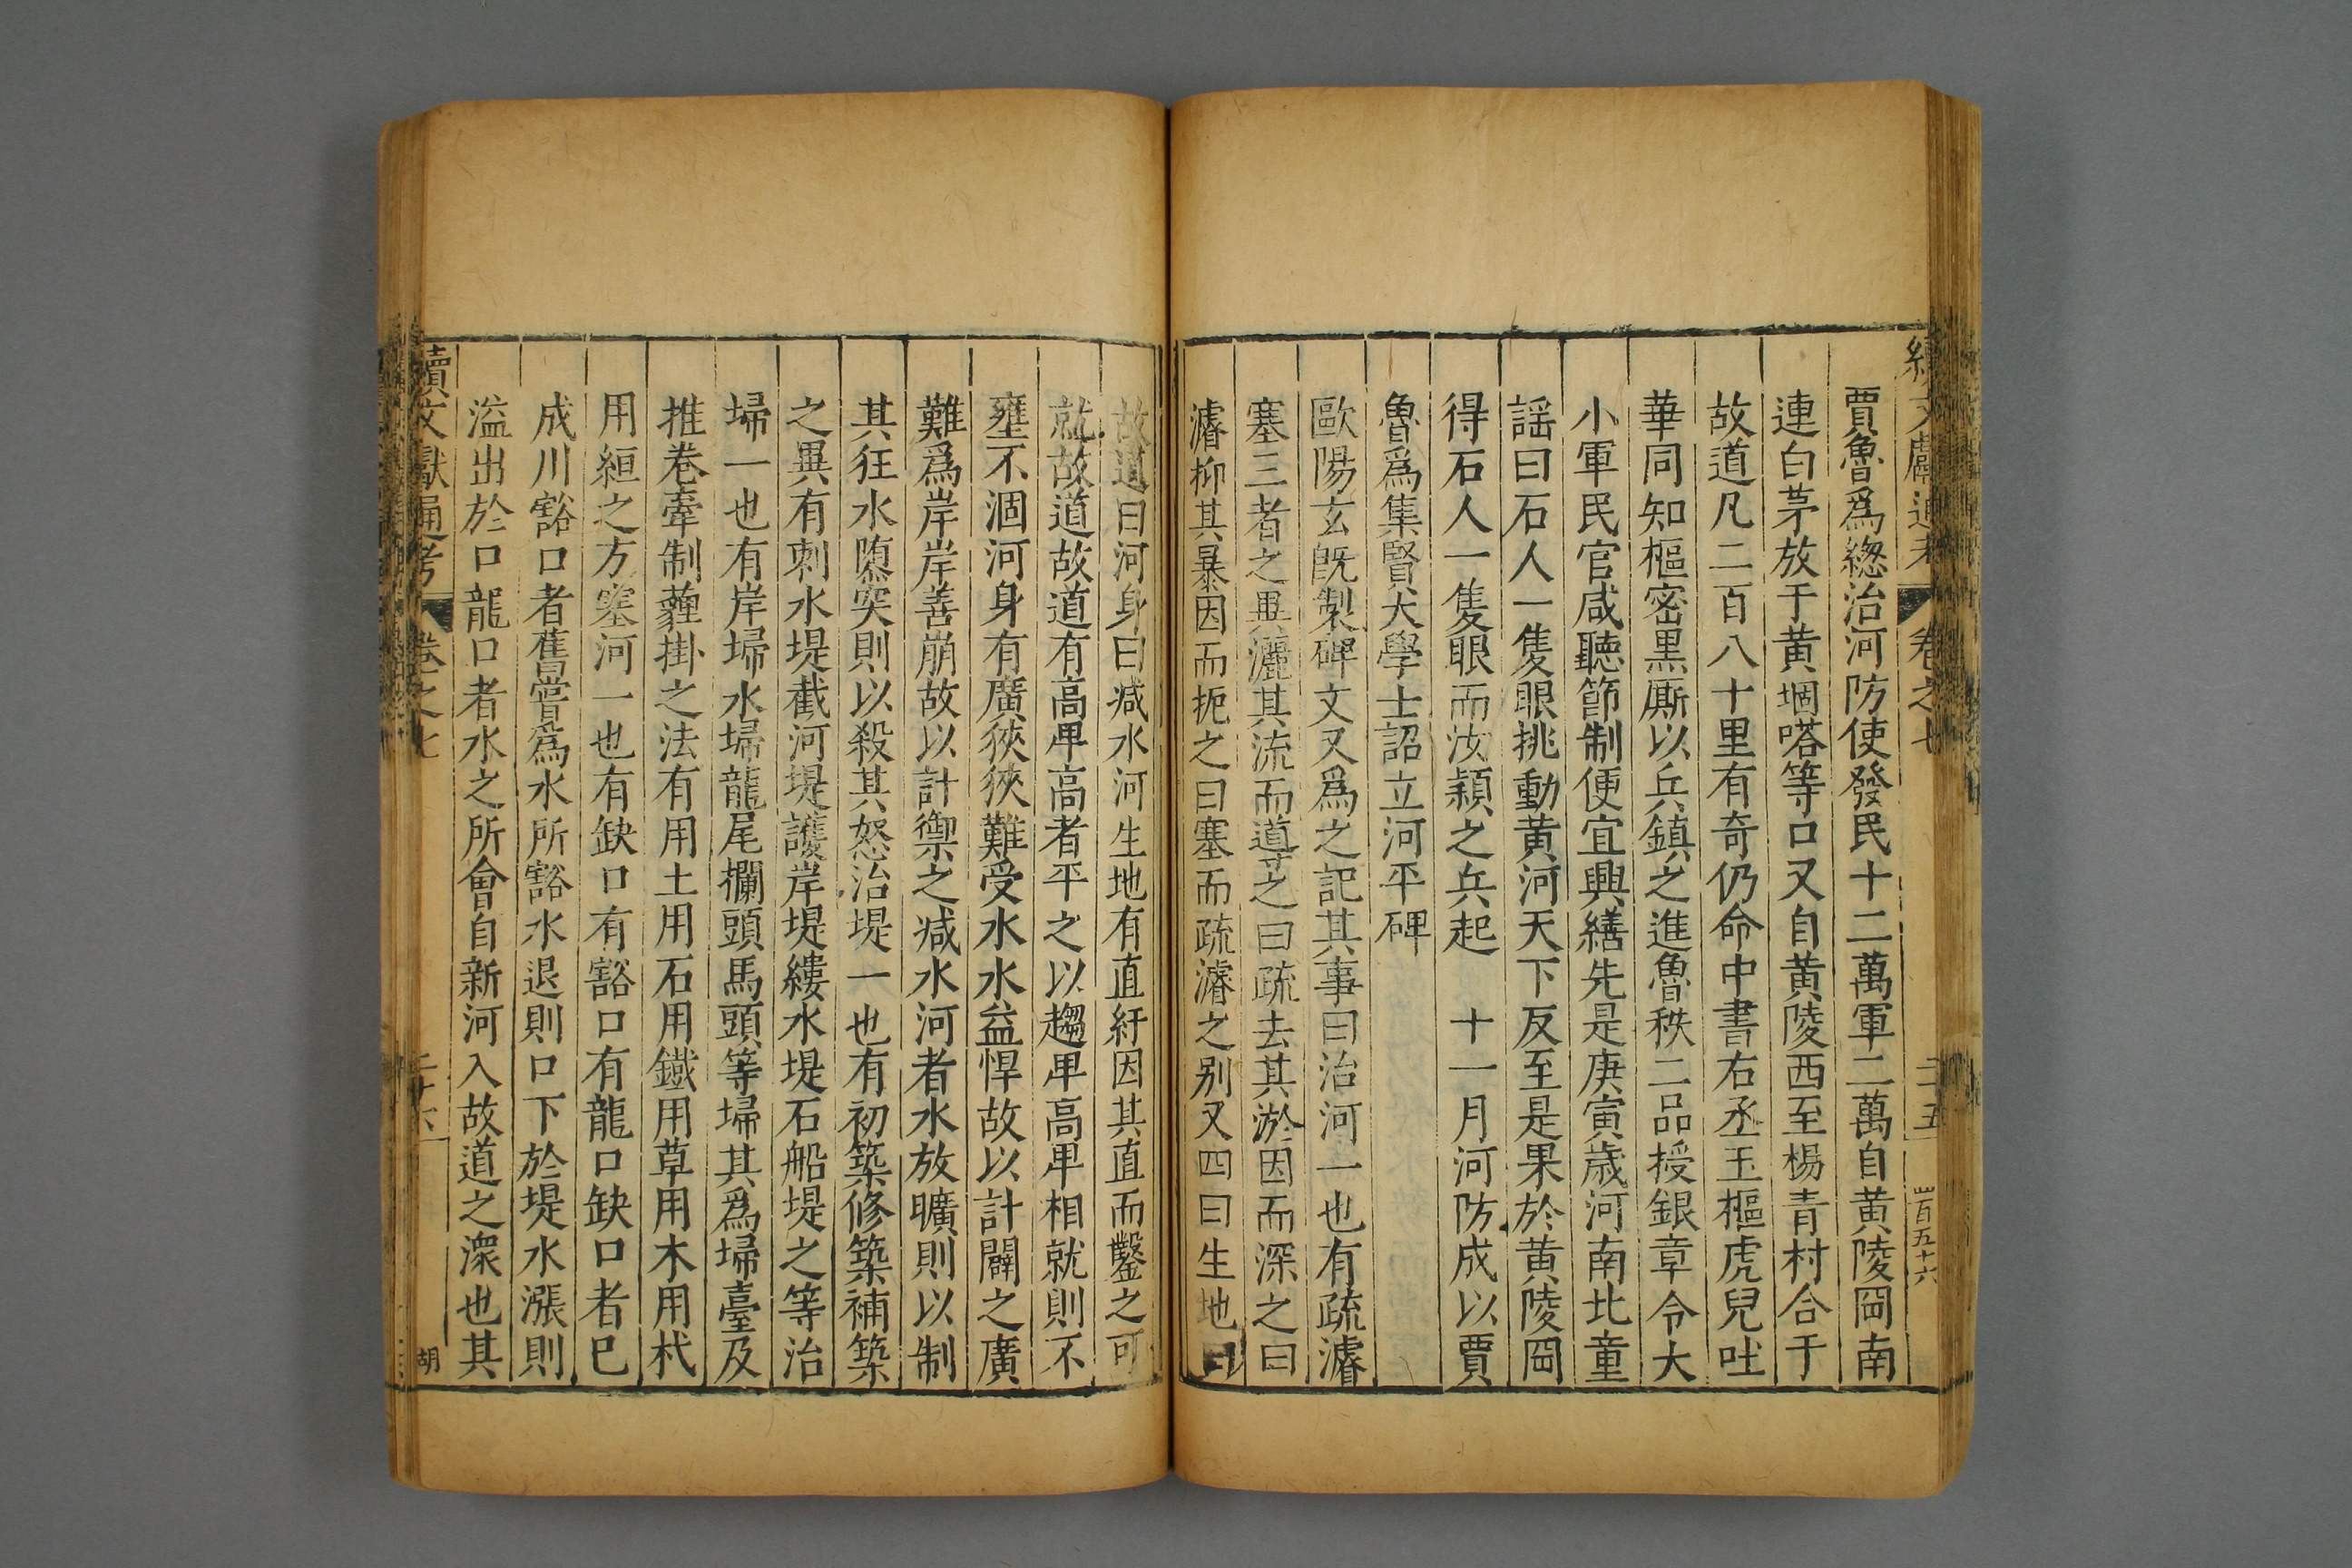 續文獻通考 卷之七 二十五 四百五十六
賈魯爲總治河防使發民十二萬軍二萬自黃陵岡南
連白茅放于黃堌嗒等口又自黃陵西至楊青村合于
故道凡二百八十里有奇仍命中書右丞玉樞虎兒吐
華同知樞密黑厮以兵鎮之進魯秩二品授銀章令大
小軍民官咸聽節制便宜興繕先是庚寅歲河南北童
謡曰石人一隻眼挑動黃河天下反至是果於黃陵岡
得石人一隻眼而汝潁之兵起 十一月河防成以賈
魯爲集賢大學士詔立河平碑
歐陽玄旣製碑文又爲之記其事曰治河一也有疏濬
塞三者之異灑其流而導之曰疏去其淤因而深之曰
濬抑其暴因而扼之曰塞而疏濬之别又四曰生地曰
故道曰河身曰减水河生地有直紆因其直而鑿之可
就故道故道有高卑高者平之以趨卑高卑相就則不
壅不涸河身有廣狹狹難受水水益悍故以計闢之廣
難爲岸岸善崩故以計禦之减水河者水放曠則以制
其狂水隳突則以殺其怒治堤一也有初築修築補築
之異有刺水堤截河堤護岸堤縷水堤石船堤之等治
埽一也有岸埽水埽龍尾欄頭馬頭等埽其爲埽臺及
推卷牽制薶掛之法有用土用石用鐵用草用木用杙
用絙之方塞河一也有缺口有豁口有龍口缺口者已
成川豁口者舊嘗爲水所豁水退則口下於堤水漲則
溢出於口龍口者水之所會自新河入故道之潨也其
續文獻通考 卷之七 二十六 胡